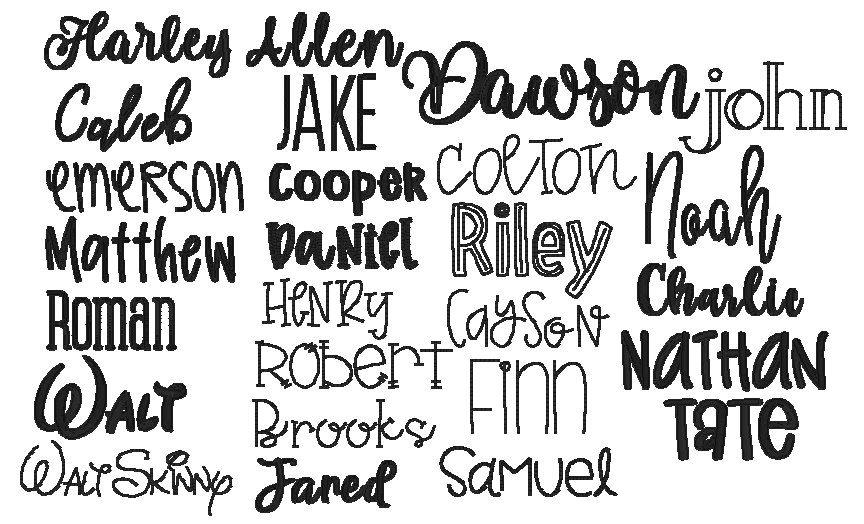 Harley
Caleb
emerson
Matthew
Roman
WALT
WALT SKINNY
Allen
JAKE
Cooper
DaNiel
HeNRY
RobeRT
Brooks
Jared
Dawson
COLTON
Riley
CaYSoN
Finn
SaMUel
john
Noah
Charlie
NATHAN
TaTe